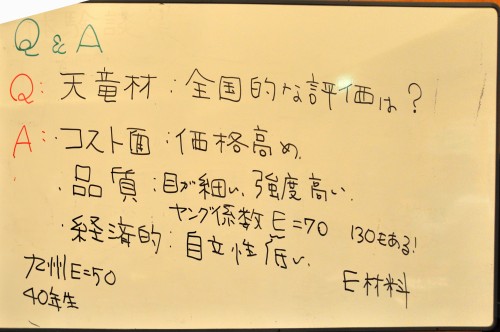 Q & A
Q: 天竜材:全国的な評価は?
A: ・コスト面:価格高め.
・品質:目が細い、強度高い.
ヤング係数 E=70 130もある!
・経済的:自立性低い.
九州E=50
40年生
E材料